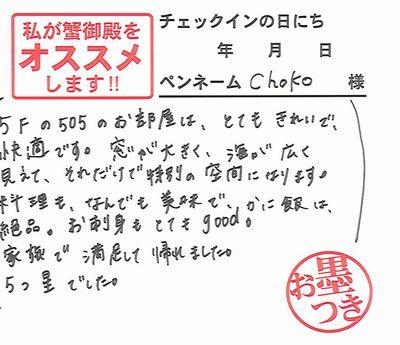 私が蟹御殿を
オススメ
します!!
チェックインの日にち
年 月 日
ペンネーム Choko 様
5Fの505のお部屋は、とてもきれいで、
快適です。窓が大きく、海が広く
見えて、それだけで特別の空間になります。
料理も、なんでも美味で、かに飯は、
絶品。お刺身もとてもgood。
家族で満足して帰れました。
5つ星でした。
お墨
つき